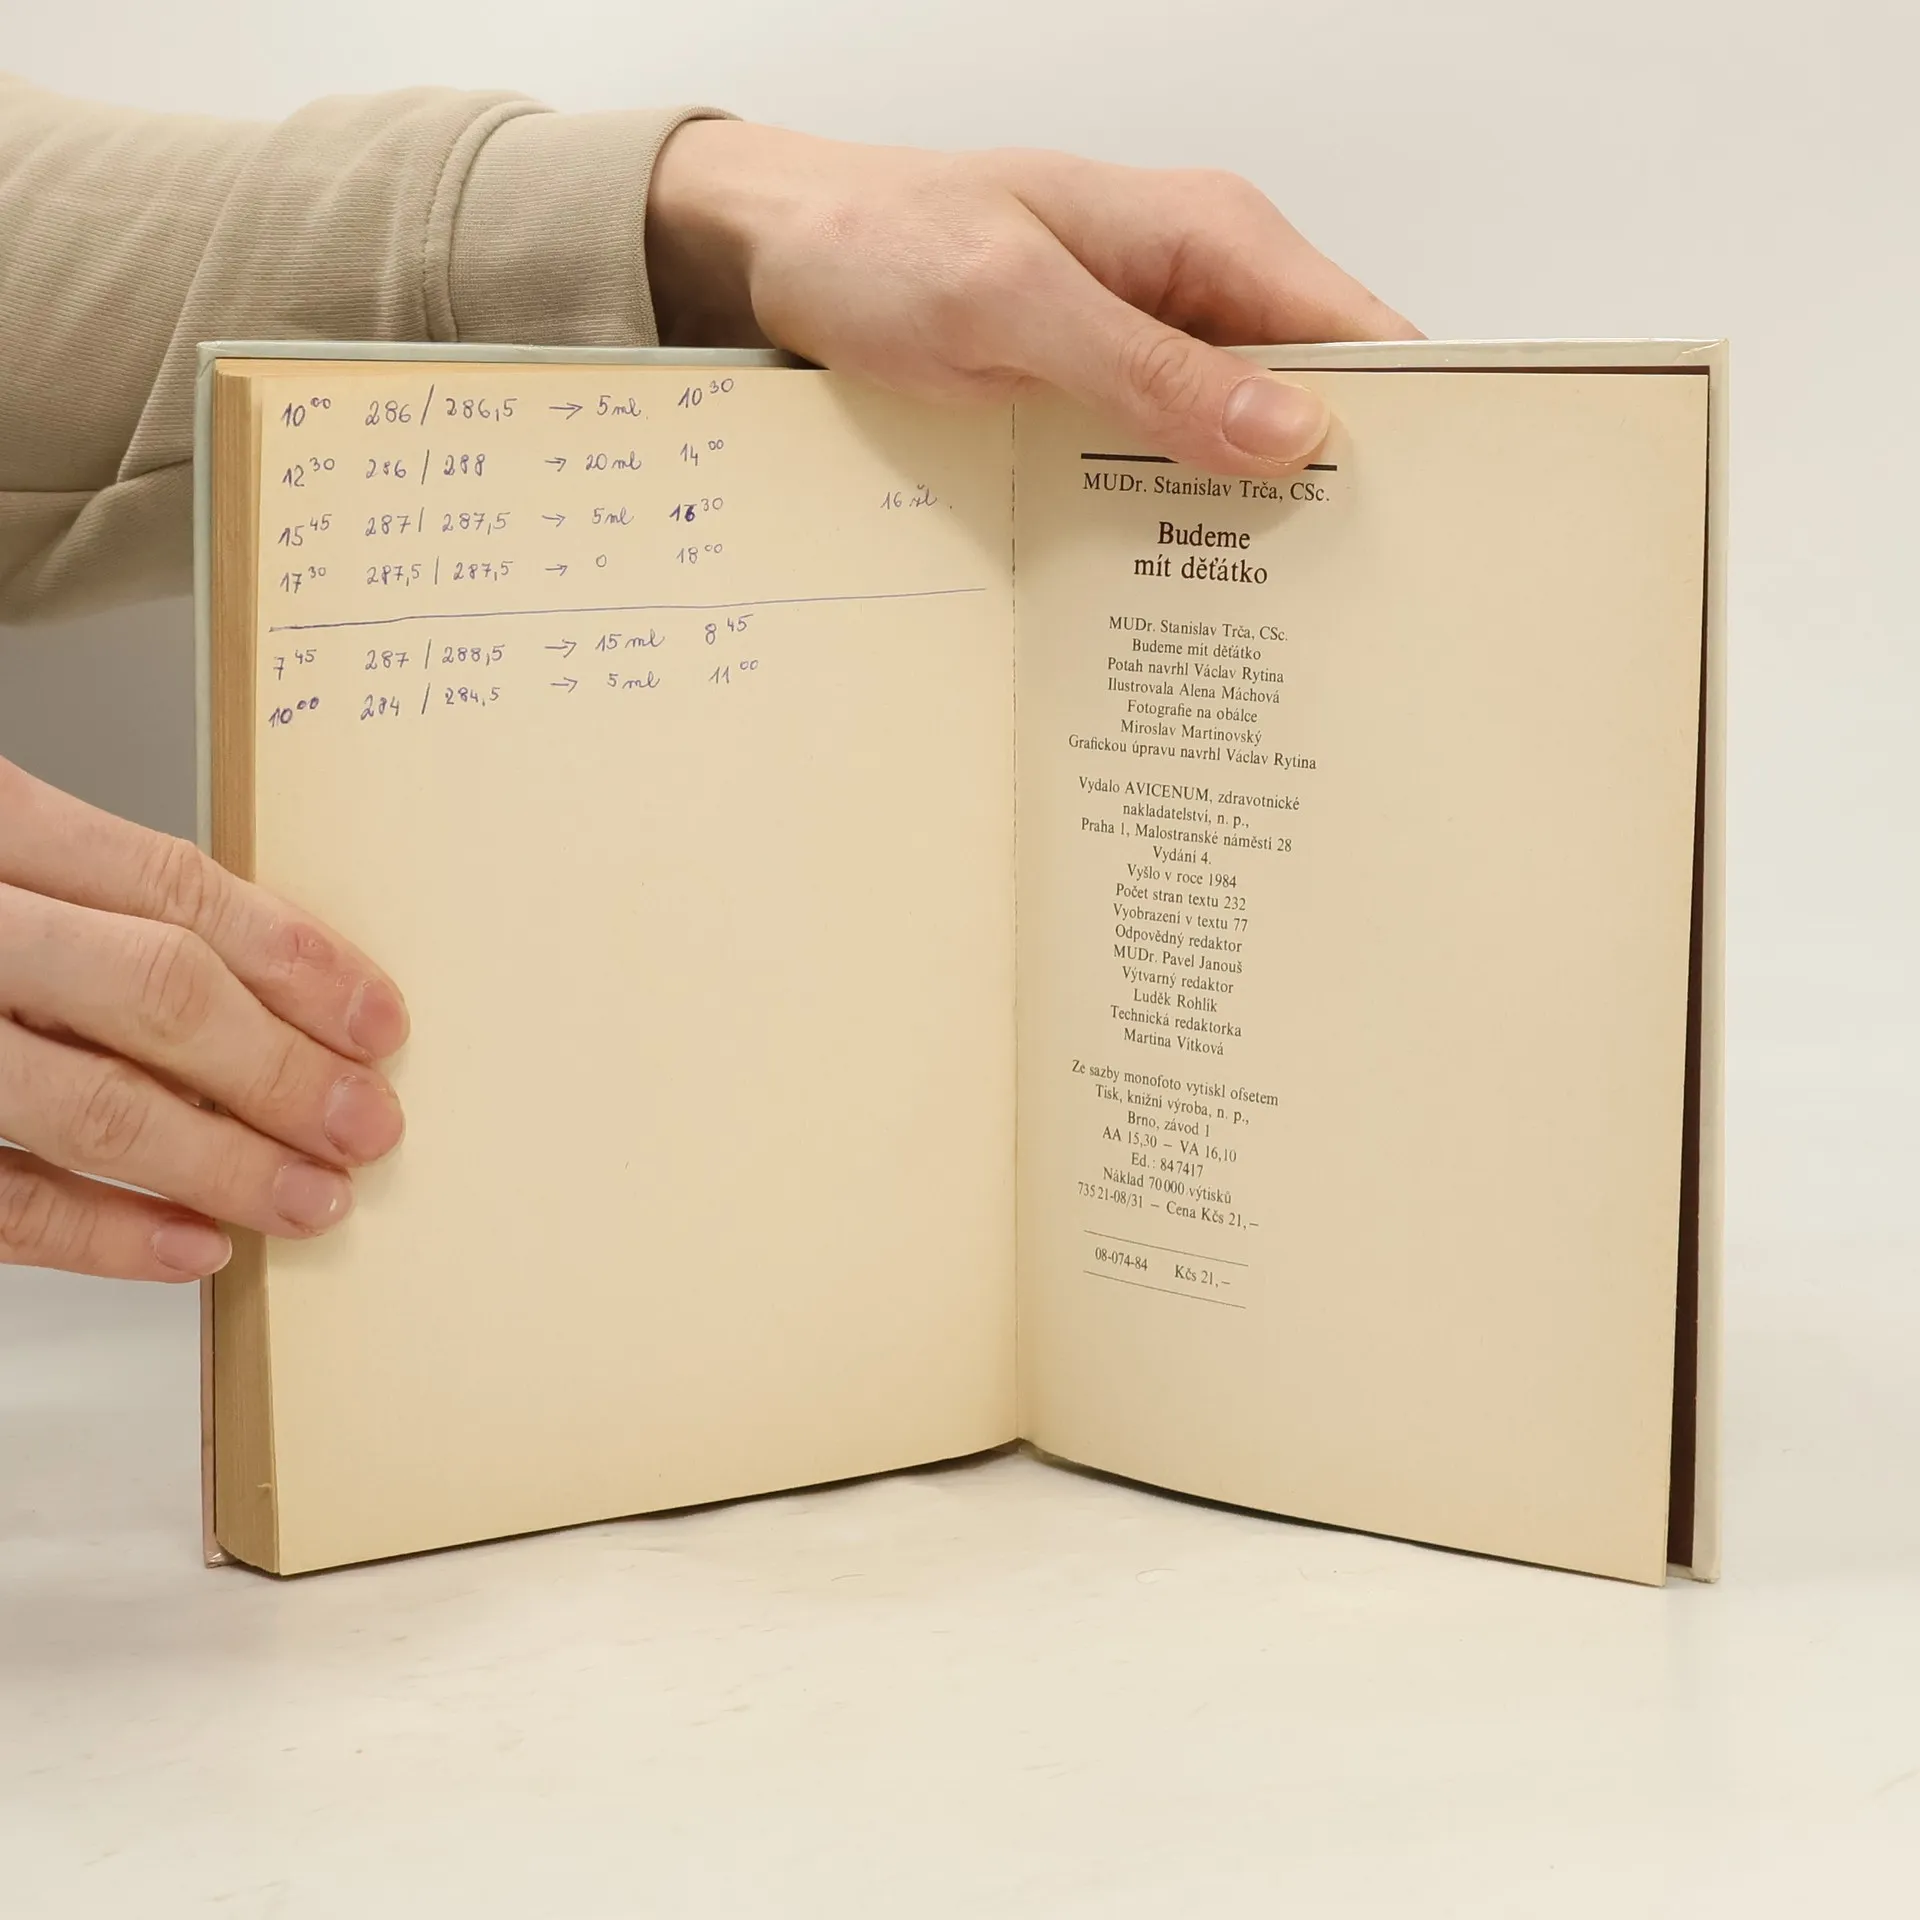 10⁰⁰ 286 / 286,5 → 5 ml. 10³⁰
12³⁰ 286 / 288 → 20 ml 14⁰⁰
15⁴⁵ 287 / 287,5 → 5 ml 16³⁰ 16 žl.
17³⁰ 287,5 / 287,5 → 0 18⁰⁰
7⁴⁵ 287 / 288,5 → 15 ml 8⁴⁵
10⁰⁰ 284 / 284,5 → 5 ml 11⁰⁰
MUDr. Stanislav Trča, CSc.
Budeme
mít děťátko
MUDr. Stanislav Trča, CSc.
Budeme mít děťátko
Potah navrhl Václav Rytina
Ilustrovala Alena Máchová
Fotografie na obálce
Miroslav Martinovský
Grafickou úpravu navrhl Václav Rytina
Vydalo AVICENUM, zdravotnické
nakladatelství, n. p.,
Praha 1, Malostranské náměstí 28
Vydání 4.
Vyšlo v roce 1984
Počet stran textu 232
Vyobrazení v textu 77
Odpovědný redaktor
MUDr. Pavel Janouš
Výtvarný redaktor
Luděk Rohlík
Technická redaktorka
Martina Vítková
Ze sazby monofoto vytiskl ofsetem
Tisk, knižní výroba, n. p.,
Brno, závod 1
AA 15,30 – VA 16,10
Ed.: 847417
Náklad 70 000 výtisků
73521-08/31 – Cena Kčs 21,–
08-074-84 Kčs 21,–